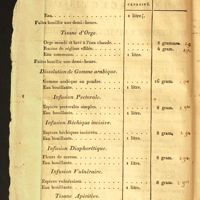 Eau. 1 litre.
Faites bouillir une demi-heure.
Tisane d'Orge.
Orge mondé et lavé à l'eau chaude. 8 gramm.
Racine de réglisse effilée. 4 gram.
Eau commune. 1 litre.
Faites bouillir une demi-heure.
Dissolution de Gomme arabique.
Gomme arabique en poudre. 16 gram.
Eau bouillante. 1 litre.
Infusion Pectorale.
Espèces pectorales simples. 8 gram.
Eau bouillante. 1 litre.
Infusion Béchique incisive.
Espèces béchiques incisives. 8 gram.
Eau bouillante. 1 litre.
Infusion Diaphorétique.
Fleurs de sureau. 8 gram.
Eau bouillante. 1 litre.
Infusion Vulnéraire.
Espèces vulnéraires. 8 gram.
Eau bouillante. 1 litre.
Tisane Apéritive.